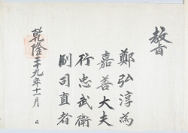 教旨
鄭弘淳為
嘉善大夫
行忠武衛
副司直者
乾隆三十九年十一月 日